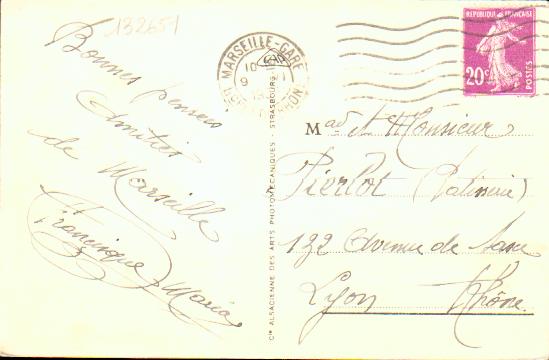 132651
Bonnes pensees
Amitiés
de Marseille
Francisque Maria
MARSEILLE-GARE
10
9
BCHES DU RHONE
REPUBLIQUE FRANÇAISE
20c
POSTES
Cie ALSACIENNE DES ARTS PHOTOMÉCANIQUES - STRASBOURG
Mad et Monsieur
Pierlot (Patisserie)
132 Avenue de Saxe
Lyon Rhône.